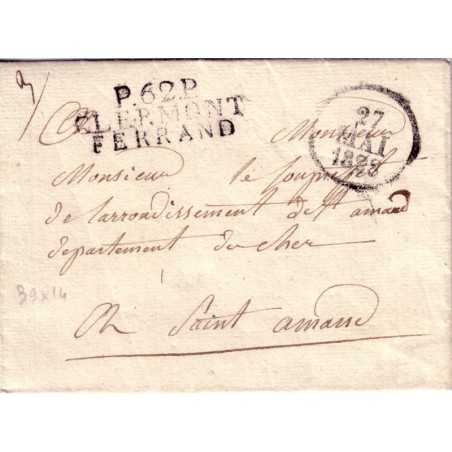 P.62.P.
CLERMONT
FERRAND
27
MAI
1828
A Monsieur
Monsieur le souprefet
de larrondissement de St amand
departement du cher
39x14
A Saint amand